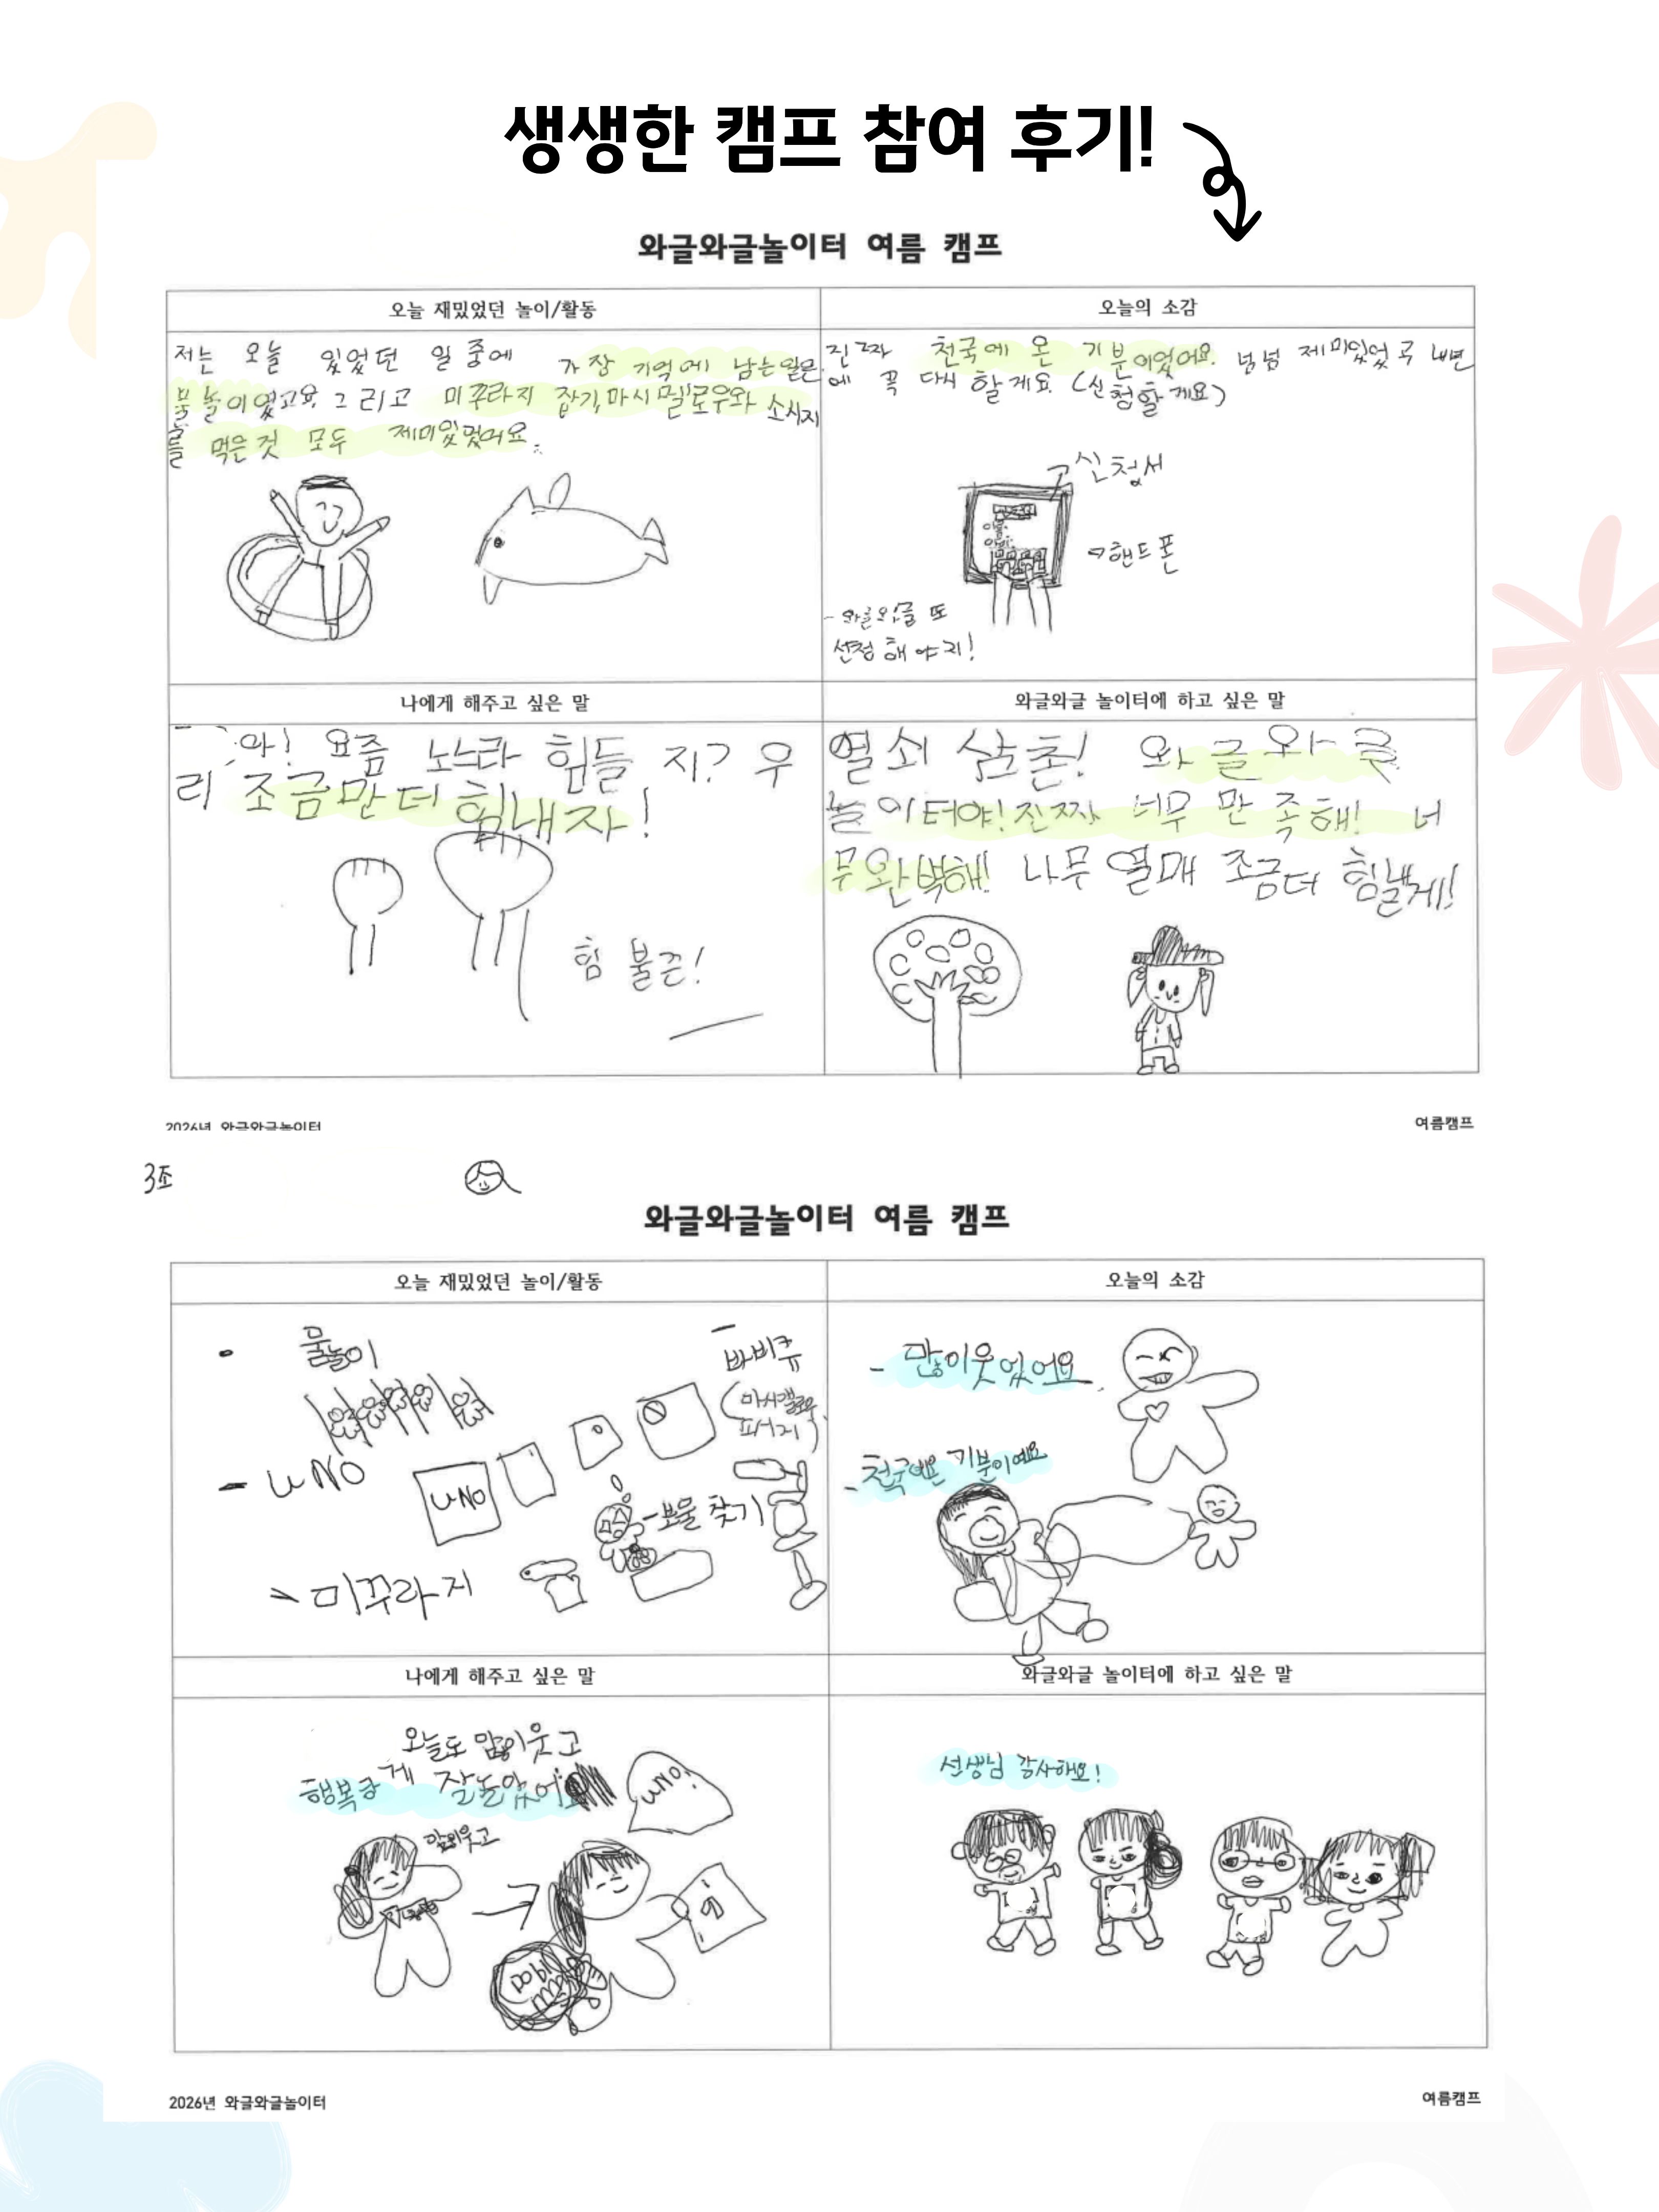 생생한 캠프 참여 후기!
와글와글놀이터 여름 캠프
오늘 재밌었던 놀이/활동
오늘의 소감
저는 오늘 있었던 일 중에 가장 기억에 남는일은
물놀이였고요, 그리고 미꾸라지 잡기, 마시멜로우와 소시지
를 먹은것 모두 제미있었어요.
진짜 천국에 온 기분이었어요. 넘넘 제미있었고 내년
에 꼭 다시 할게요 (신청할게요)
신청서
핸드폰
-와글와글 또
선정해야지!
나에게 해주고 싶은 말
와글와글 놀이터에 하고 싶은 말
와! 요즘 노느라 힘들지? 우
리 조금만 더 힘내자!
힘 불끈!
열쇠 삼촌! 와글와글
놀이터야! 진짜 너무 만족해! 너
무 완벽해! 나무 열매 조금더 힘낼게!
2026년 와글와글놀이터
여름캠프
3조
와글와글놀이터 여름 캠프
오늘 재밌었던 놀이/활동
오늘의 소감
물놀이
바비큐
- UNO
UNO
-보물찾기
미꾸라지
- 많이웃었어요
-천국에온 기분이예요
나에게 해주고 싶은 말
와글와글 놀이터에 하고 싶은 말
오늘도 많이웃고
행복하게 잘놀았어요
많이웃고
UNO!
선생님 감사해요!
2026년 와글와글놀이터
여름캠프